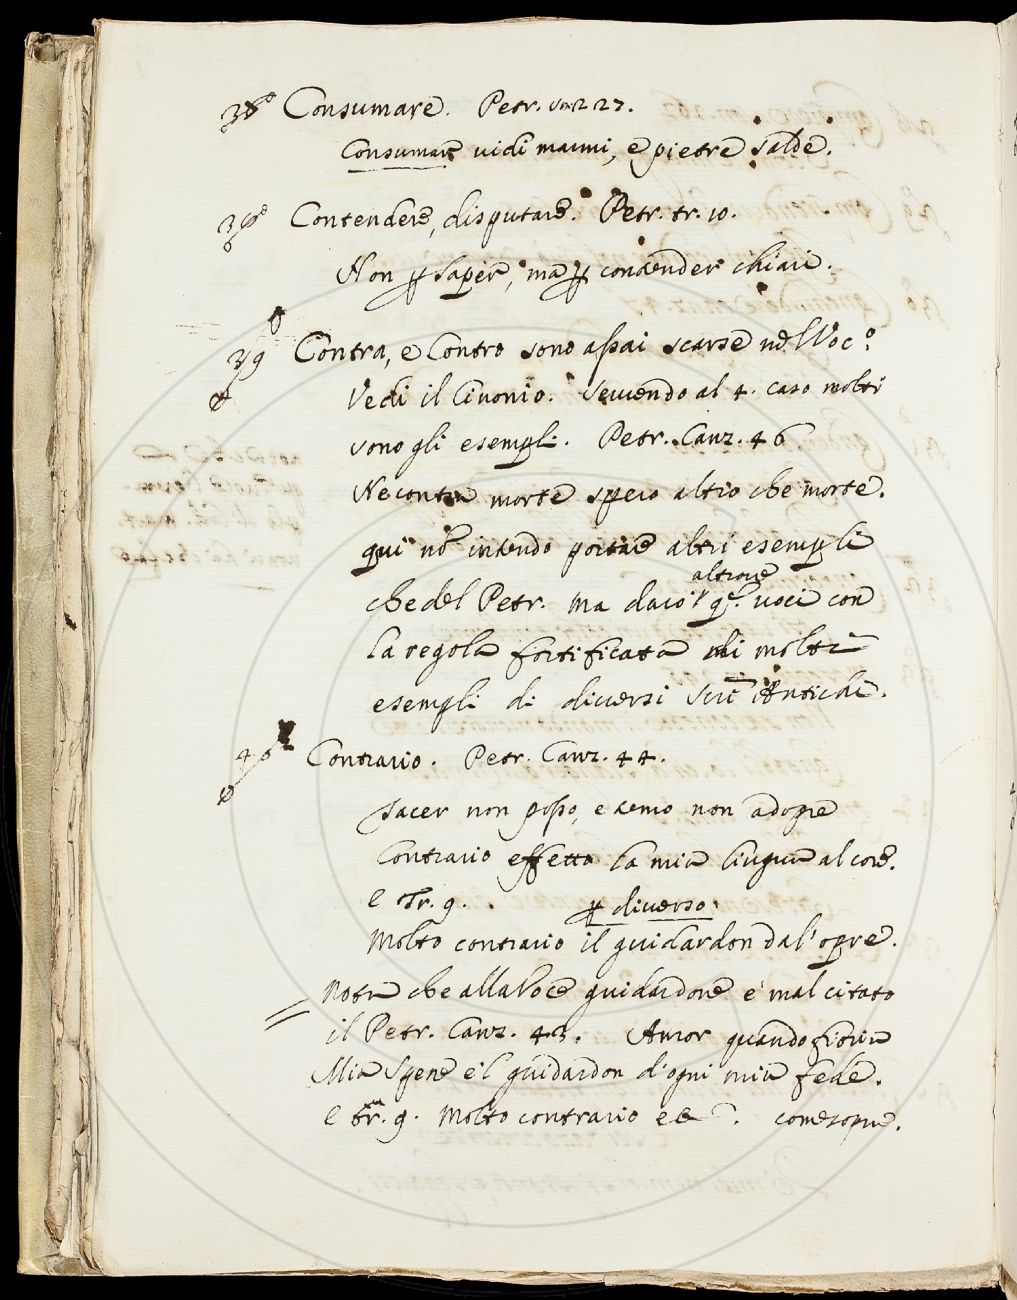 38 Consumare. Petr. son. 227.
Consumar vidi marmi, e pietre salde.
Contendere, disputare. Petr. tr. 10.
Non ꝑ saper, ma ꝑ contender chiari.
39 Contra, e Contro sono assai scarse nel Voc.º
Vedi il Cinonio. Servendo al 4. caso molti
sono gli esempli. Petr. Canz. 46
Ne contra morte spero altro che morte.
qui nõ intendo portare altri esempli
altrove
che del Petr. ma darò q.ste voci con
la regola fortificata di molti
esempli di diversi Antichi.
40 Contrario. Petr. Canz. 44.
Tacer non posso, e temo non adopre
Contrario effetto la mia lingua al core.
e Tr. 9.
ꝑ diverso.
Molto contrario il guidardon dal'opre.
Nota che alla Voce guidardone è mal citato
il Petr. Canz. 43. Amor quando fioria
Mia Spene e'l guidardon d'ogni mia fede.
e Tr. 9. Molto contrario ec. come sopra.